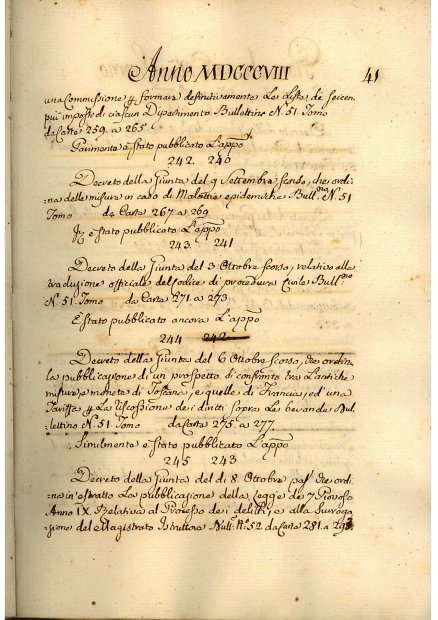 Anno MDCCCVIII 41
una Commissione p formare definitivamente La Lista de' Seicen
più imposti di ciascun Dipartimento Bullettino N. 51. Tomo
da Carte 259. a 265
Parimente è stato pubblicato L'appo
242 240
Decreto della Giunta del 9 Settembre scorso, che ordi
na delle misure in caso di Malattie epidemiche Bull.no N. 51
Tomo da Carte 267 a 269
è stato pubblicato L'appo
243 241
Decreto della Giunta del 3 Ottobre scorso, relativo alla
traduzione officiale del Codice di procedura Civile Bull.no
N. 51. Tomo da Carte 271 a 273
È stato pubblicato ancora L'appo
244 242
Decreto della Giunta del 6 Ottobre scorso, che ordina
la pubblicazione di un prospetto di confronto tra L'antiche
misure, e moneta di Toscana, e quelle di Francia, ed una
Tariffa p La riscossione dei diritti sopra Le bevande Bul
lettino N. 51. Tomo da Carte 275. a 277.
Similmente è stato pubblicato L'appo
245 243
Decreto della Giunta del dì 8. Ottobre pas. che ordi
na in estratto La pubblicazione della Legge de 7 Piovoso
Anno IX. Relativa al Processo dei delitti, e alla surroga
zione del Magistrato Istruttore Bull. N. 52 da Carte 281 a 293.